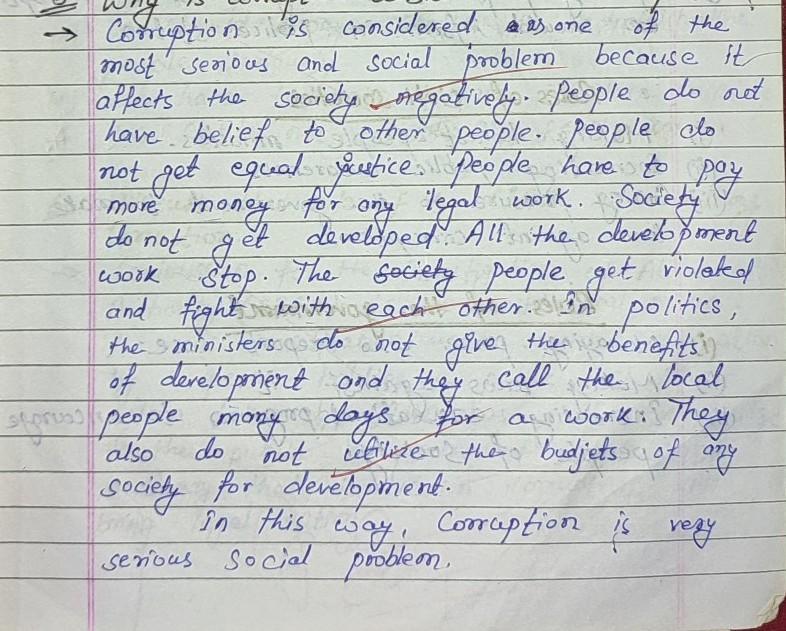 Why is
→ Corruption is considered as one of the
most serious and social problem because it
affects the society negatively. People do not
have belief to other people. People do
not get equal justice. People have to pay
more money for any legal work. Society
do not get developed. All the development
work stop. The society people get violated
and fight with each other. In politics,
the ministers do not give the benefits
of development and they call the local
people many days for a work. They
also do not utilize the budjets of any
society for development.
In this way, Corruption is very
serious social problem.